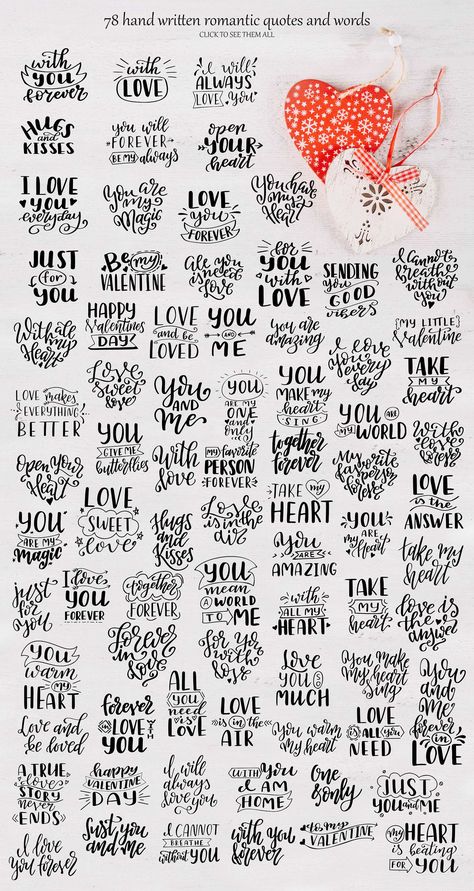 78 hand written romantic quotes and words
CLICK TO SEE THEM ALL
with YOU forever
with LOVE
I will ALWAYS LOVE you
HUGS and KISSES
you will FOREVER BE my always
open YOUR heart
I LOVE YOU everyday
You are my Magic
LOVE you FOREVER
You have my Heart
JUST for YOU
Be my VALENTINE
All you need is love
for YOU with LOVE
SENDING you GOOD vibes
I cannot breathe without you
With all my Heart
HAPPY Valentines DAY
LOVE and be LOVED
YOU AND ME
You are amazing
I love You every day
{MY LITTLE} Valentine
LOVE makes EVERYTHING BETTER
Love sweet love
You AND Me
YOU ARE MY ONE and only
YOU MAKE MY heart SING
YOU ARE MY WORLD
TAKE MY heart
Open Your Heart
YOU GIVE ME butterflies
With love
MY favorite PERSON FOREVER
together forever
My favorite person forever
With love
YOU ARE MY Magic
LOVE SWEET love
Hugs and Kisses
Love is in the air
TAKE my HEART
YOU are my Heart
LOVE is the ANSWER
just for you
I love YOU FOREVER
together FOREVER
YOU mean A WORLD TO ME
You ARE AMAZING
with ALL MY HEART
TAKE MY heart
take my heart
love is the answer
YOU warm my HEART
Forever in love
for You with love
Love YOU SO MUCH
You make my heart sing
You and me forever in LOVE
Love and be loved
forever IN LOVE WITH YOU
ALL YOU need is LOVE
LOVE is in the AIR
You warm my heart
LOVE IS ALL you NEED
A TRUE love STORY never ENDS
happy VALENTINE DAY
I will always love you
WITH You I AM HOME
One & only
JUST YOU and ME
I love You forever
Just You and me
I CANNOT BREATHE without YOU
with you forever
to my VALENTINE
my HEART is beating FOR YOU